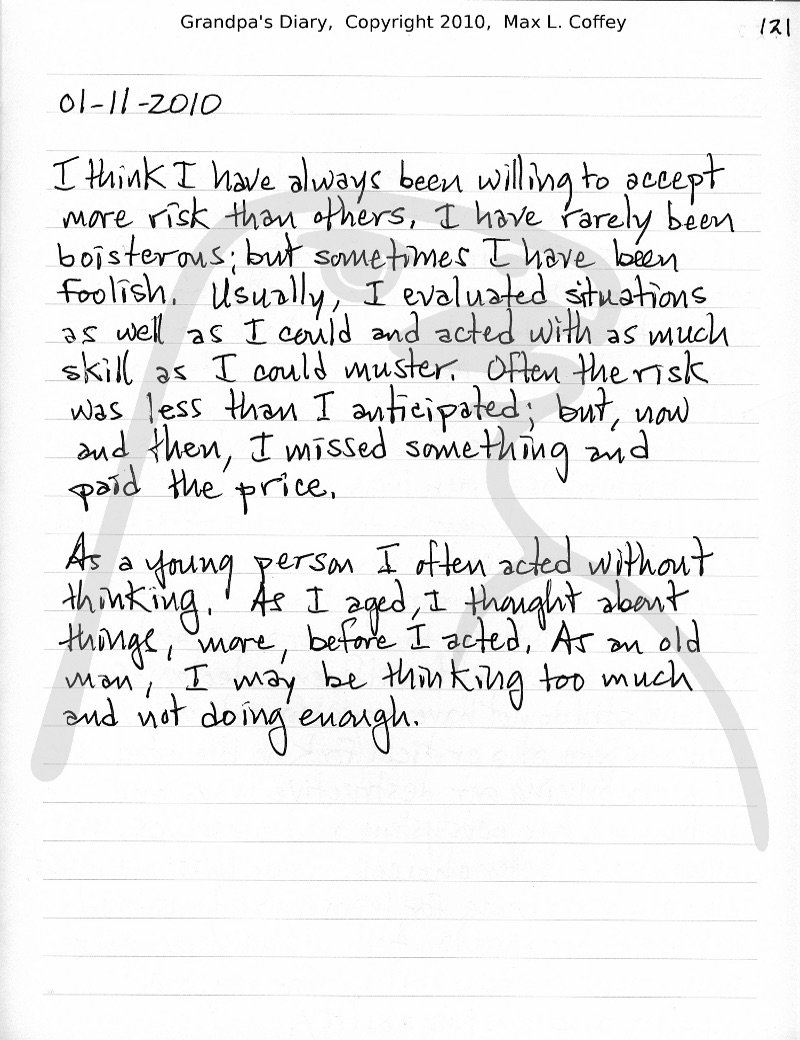 Grandpa's Diary, Copyright 2010, Max L. Coffey
121
01-11-2010
I think I have always been willing to accept
more risk than others. I have rarely been
boisterous; but sometimes I have been
foolish. Usually, I evaluated situations
as well as I could and acted with as much
skill as I could muster. Often the risk
was less than I anticipated; but, now
and then, I missed something and
paid the price.
As a young person I often acted without
thinking. As I aged, I thought about
things, more, before I acted. As an old
man, I may be thinking too much
and not doing enough.